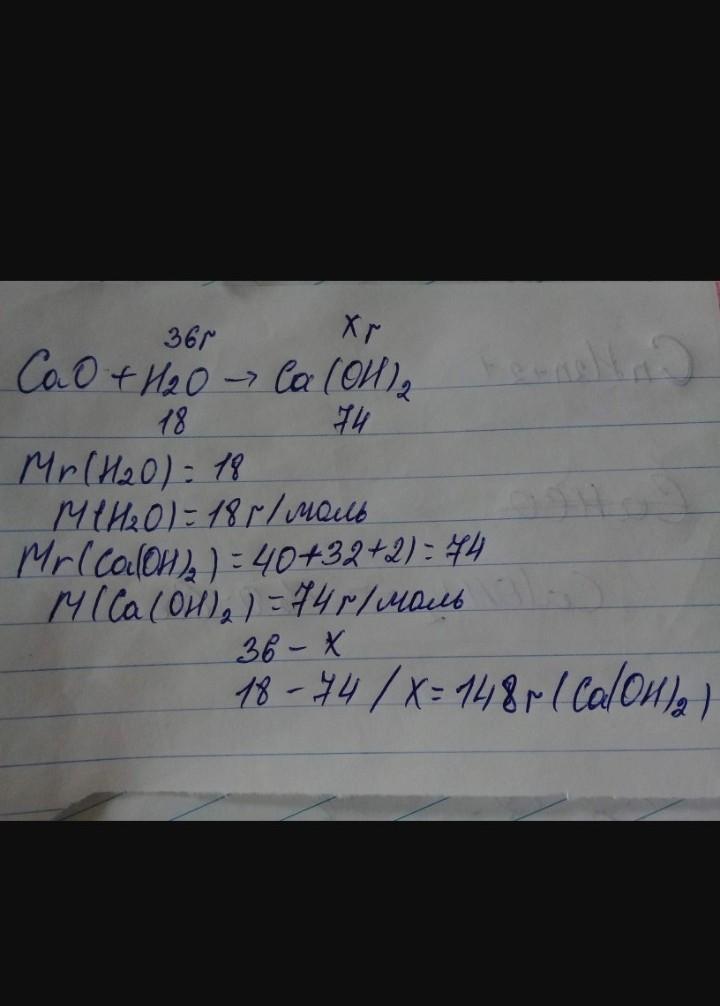 36г хг
CaO + H2O → Ca(OH)2
18 74
Mr(H2O) = 18
M(H2O) = 18 г/моль
Mr(Ca(OH)2) = 40+32+2) = 74
M(Ca(OH)2) = 74 г/моль
36 – х
18 – 74 / х = 148 г (Ca(OH)2)